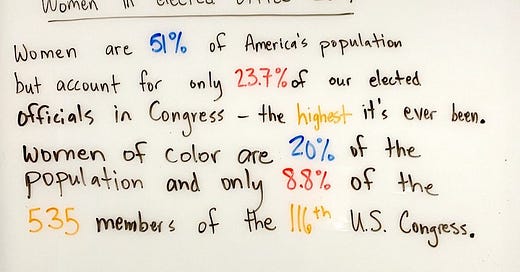 Women in elected office
Women are 51% of America's population
but account for only 23.7% of our elected
officials in Congress – the highest it's ever been.
Women of color are 20% of the
population and only 8.8% of the
535 members of the 116th U.S. Congress.